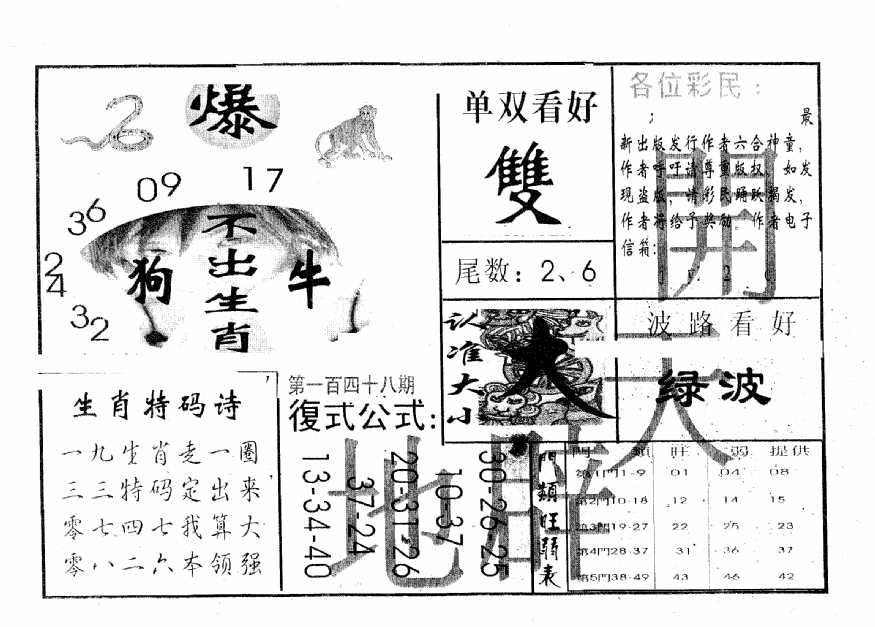 爆
09
17
36
24
32
不出生肖
狗
牛
单双看好
雙
尾数：2、6
各位彩民：
最
新出版发行作者六合神童，
作者呼吁请尊重版权，如发
现盗版，请彩民踊跃揭发，
作者将给予奖励，作者电子
信箱：
認准大小
大
波路看好
绿波
開
天
地
生肖特码诗
一九生肖走一圈
三三特码定出来
零七四七我算大
零八二六本领强
第一百四十八期
復式公式：
13-34-40
37-24
20-31-26
10-37
30-26-25
門類旺弱表
門類 旺 弱 提供
第1門1-9 01 04 08
第2門10-18 12 14 15
第3門19-27 22 25 23
第4門28-37 31 36 37
第5門38-49 43 46 42